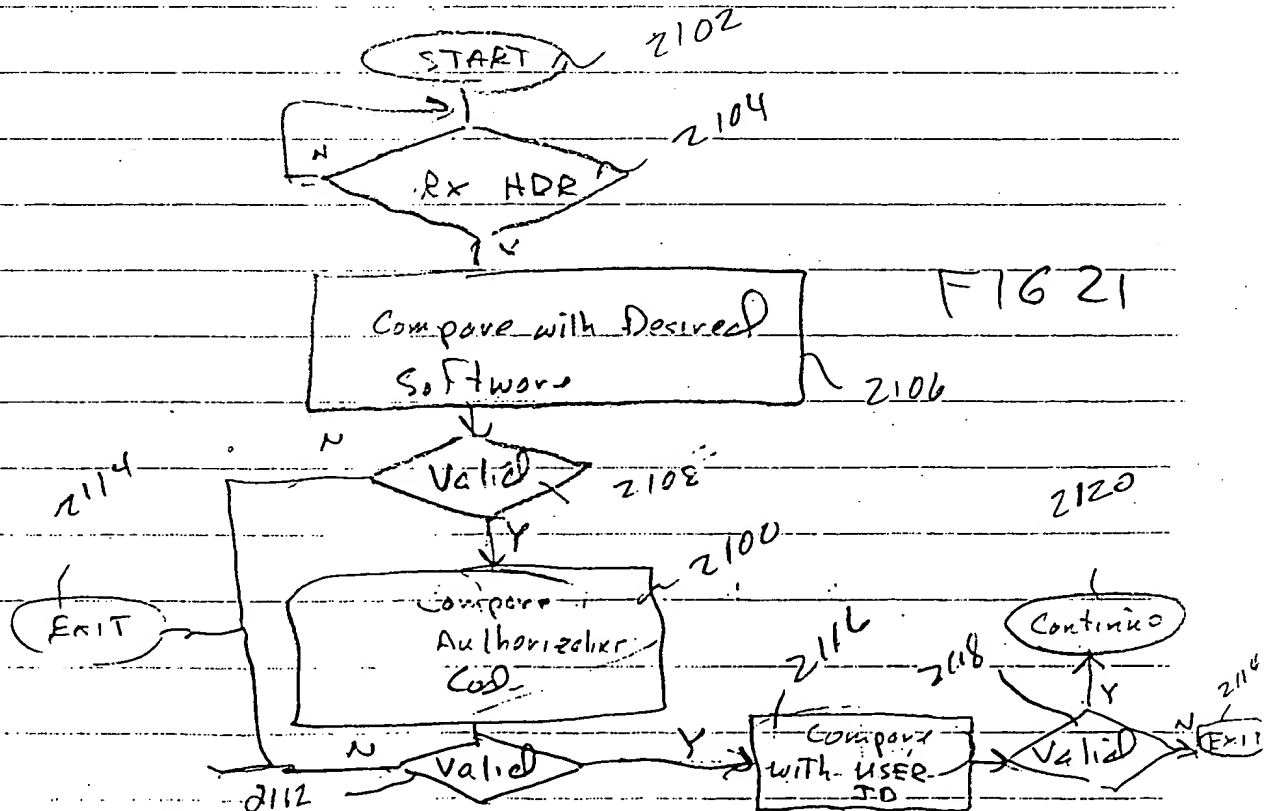 START
2102
2104
N
Rx HDR
Y
FIG 21
Compare with Desired
Software
2106
N
Valid
2108
2114
2120
Y
2100
Compare
Authorization
Code
EXIT
Continue
2116
2118
Y
N
Valid
2112
Y
Compare
with USER
ID
Valid
N
EXIT
2114